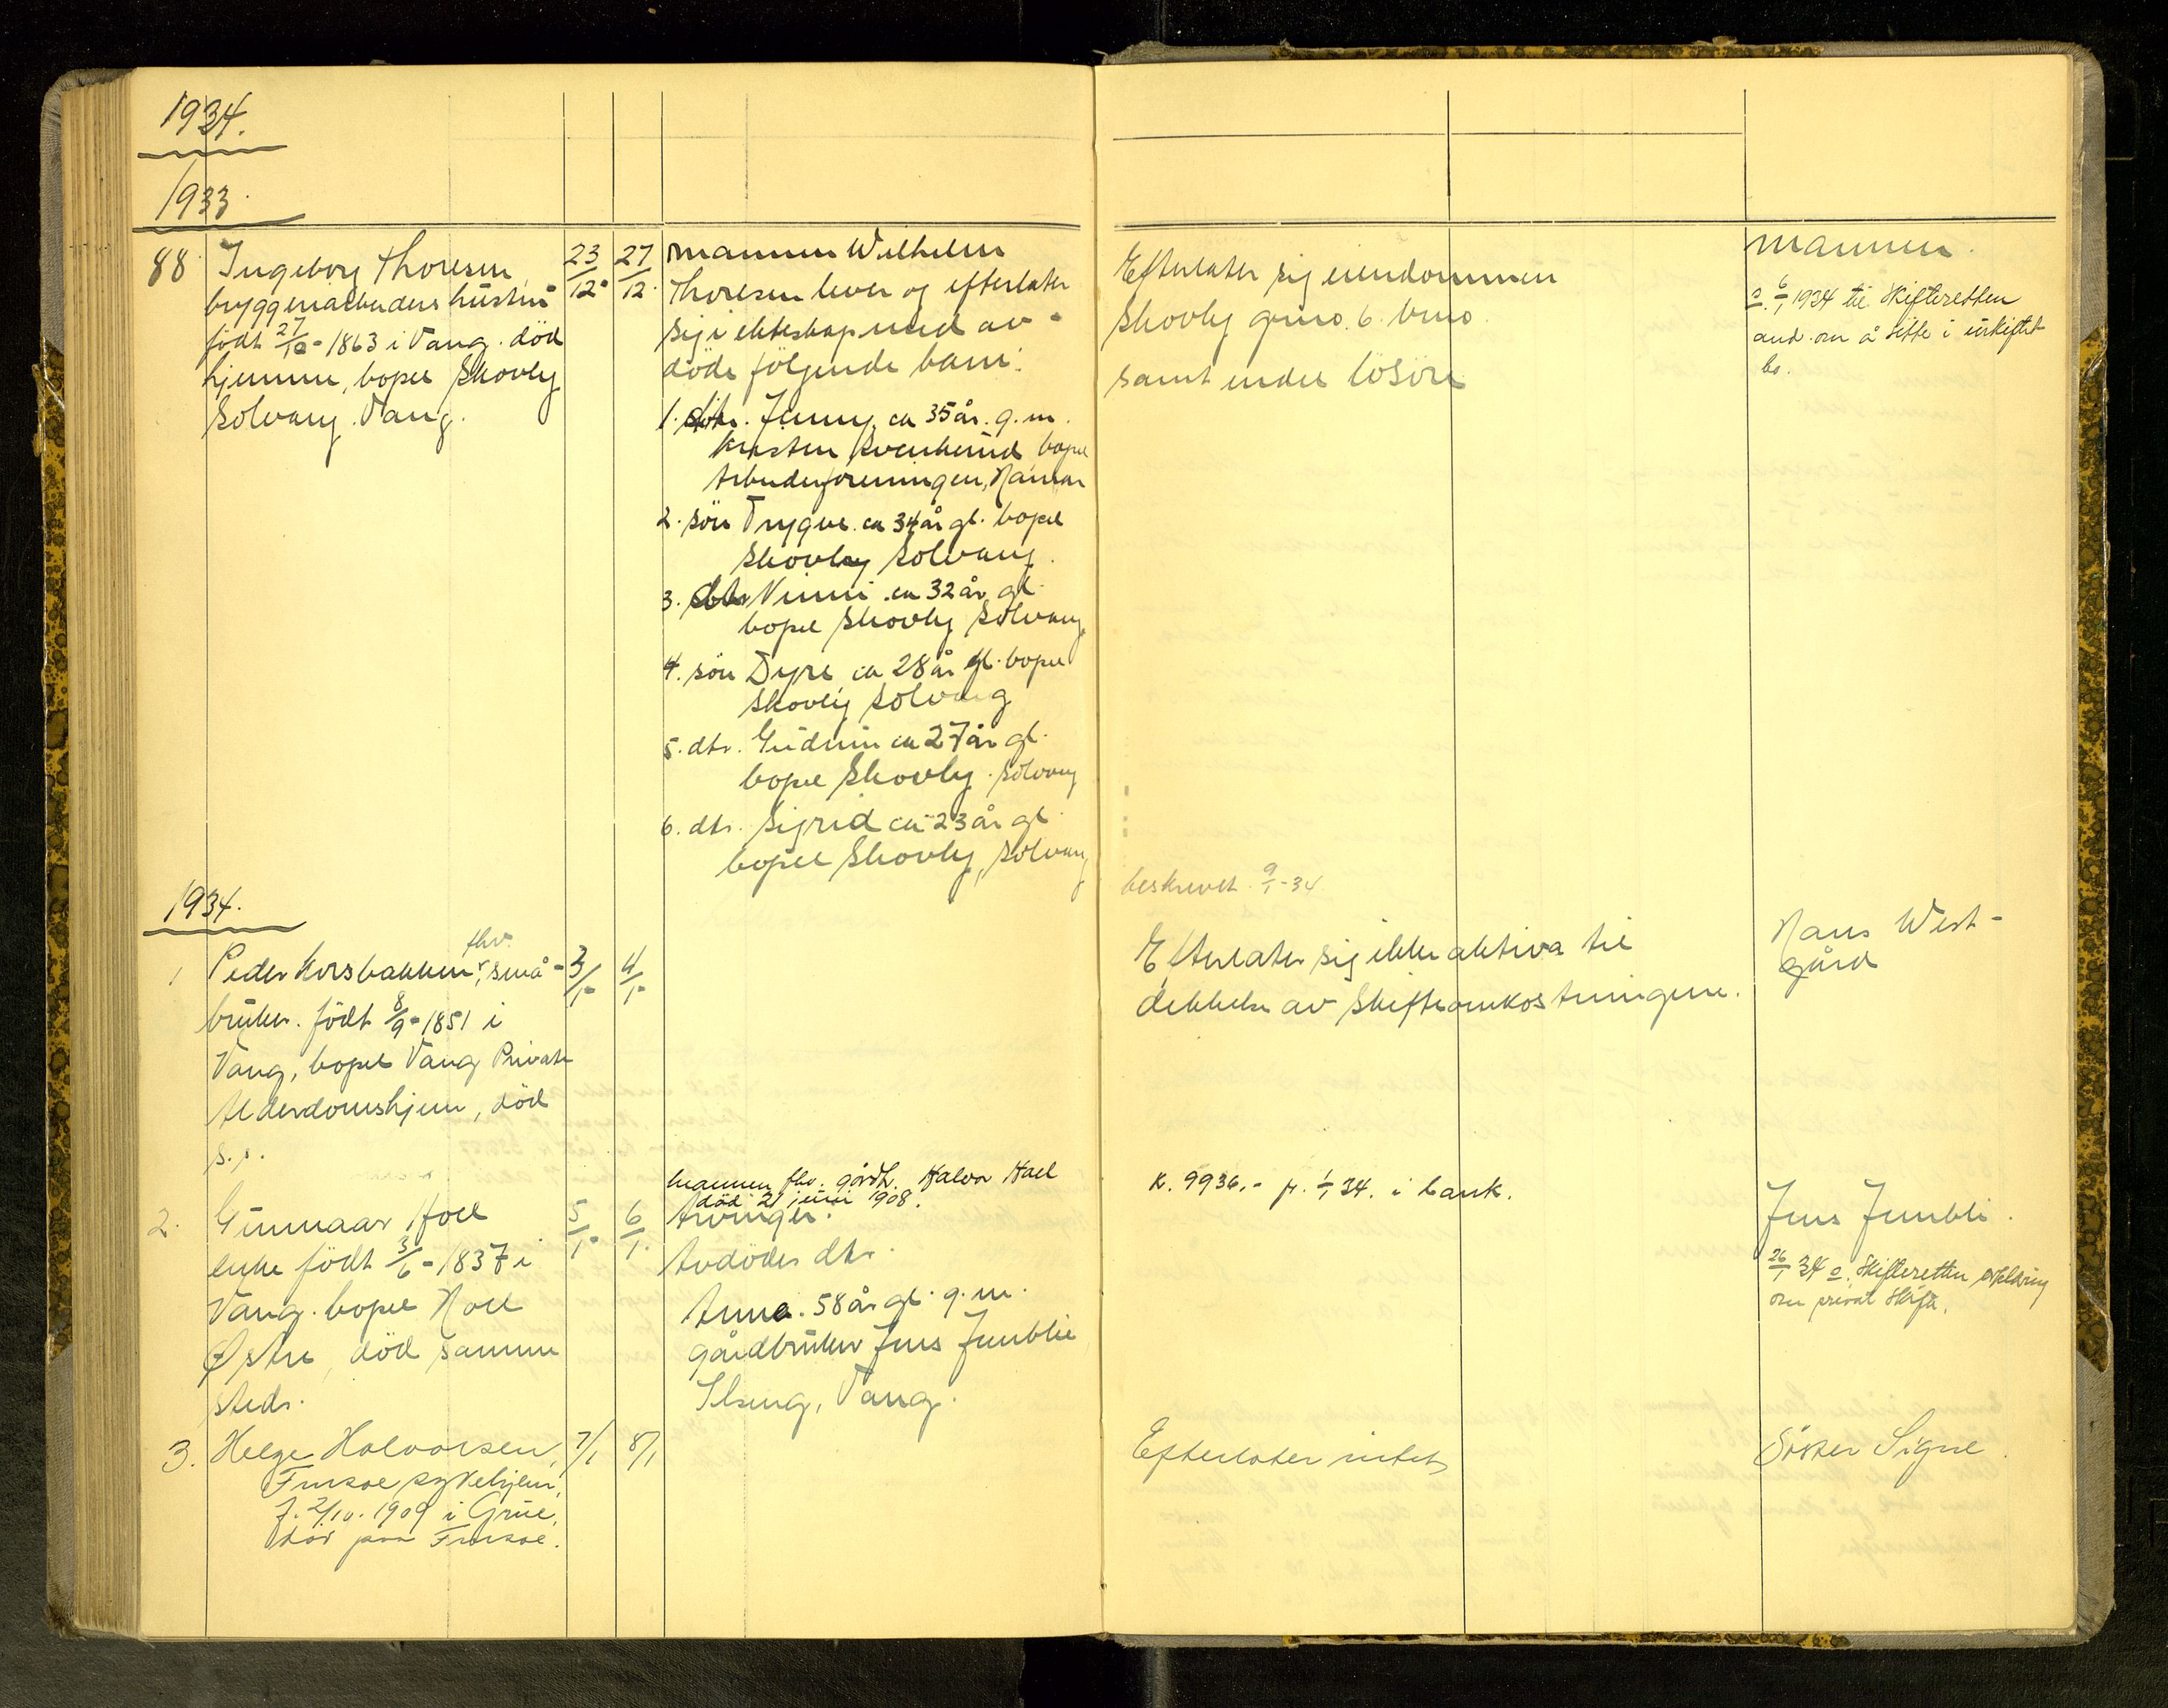 1934.
1933.
88 Ingeborg Thoresen,
bryggeriarbeiders hustru
født 27/10-1863 i Vang. död
hjemme, bopel Skovly
Solvang. Vang.
23/12 27/12
mannen Wilhelm
Thoresen lever og efterlater
sig i ekteskap med av-
döde fölgende barn:
1. dtr. Jenny, ca 35 år. g. m.
Kristen bopel
Arbeiderforeningen, Hamar
2. sön Trygve. ca 34 år gl. bopel
Skovly Solvang.
3. dtr Vinni. ca 32 år gl.
bopel Skovly Solvang
4. sön Dyre ca 28 år gl. bopel
Skovly Solvang
5. dtr. Gudrun ca 27 år gl.
bopel Skovly. Solvang
6. dtr. Sigrid ca 23 år gl.
bopel Skovly, Solvang
Efterlater sig eiendommen
Skovly grno. 6. brno.
samt endel lösöre
mannen.
o. 6/1 1934 til Skifteretten
and. om å sitte i uskiftet
bo.
beskrevet. 9/1-34
1934.
1 Peder Korsbakken, fhv. små-
bruker. födt 8/9-1851 i
Vang, bopel Vang Private
Alderdomshjem, död
s. s.
3/1 4/1
Efterlater sig ikke aktiva til
dekkelse av skifteomkostningene.
Hans West-
gård
2. Gunnaar Hoel
enke födt 3/6-1837 i
Vang. bopel Hoel
Østre, död samme
steds.
5/1 6/1.
mannen fhv. gårdb. Halvor Hoel
död 21 juni 1908.
Arvinger.
Avdödes dtr.
Anna. 58 år gl. g. m.
gårdbruker Jens Jenblie
Ilseng, Vang.
K. 9936,- pr. 1/1 34. i bank.
Jens Jenbli.
26/1 34 o. Skifteretten erklæring
om privat skifte.
3. Helge Halvorsen,
Furvoe sykehjem,
f. 2/10. 1909 i Grue,
död paa Furvoe.
7/1 8/1
Efterlater intet
Söster Signe.